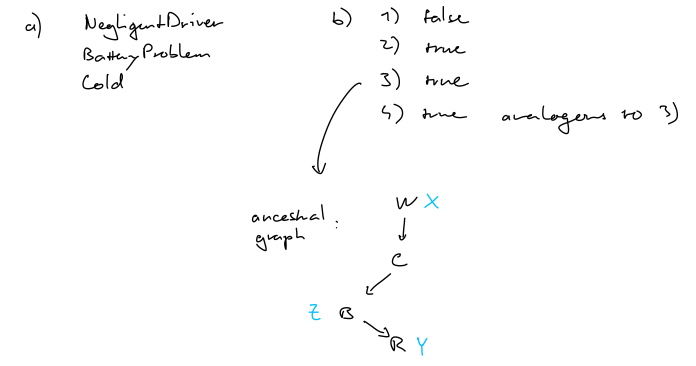 a) NegligentDriver
BatteryProblem
Cold
b) 1) false
2) true
3) true
4) true analogous to 3)
ancestral
graph :
W X
C
Z B
R Y